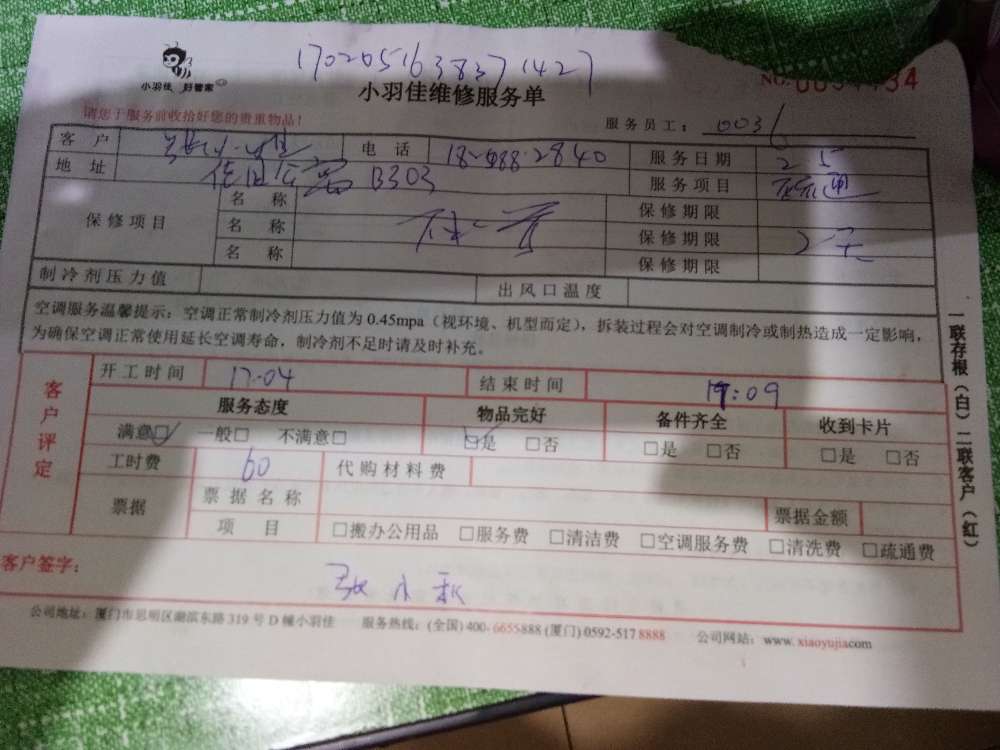 1702051638371427
小羽佳 好管家
小羽佳维修服务单
NO.
请您于服务前收拾好您的贵重物品！
服务员工： 0031
客 户 电 话 服务日期 2 5
地 址 B303 服务项目
保修项目 名 称 保修期限
名 称 保修期限
名 称 保修期限
制冷剂压力值 出风口温度
空调服务温馨提示：空调正常制冷剂压力值为 0.45mpa（视环境、机型而定），拆装过程会对空调制冷或制热造成一定影响，
为确保空调正常使用延长空调寿命，制冷剂不足时请及时补充。
客户评定
开工时间 17:04 结束时间 19:09
服务态度 物品完好 备件齐全 收到卡片
满意☑ 一般□ 不满意□ ☑是 □否 □是 □否 □是 □否
工时费 60 代购材料费
票据 票据名称 票据金额
项 目 □搬办公用品 □服务费 □清洁费 □空调服务费 □清洗费 □疏通费
客户签字： 张小秋
公司地址：厦门市思明区湖滨东路 319 号 D 幢小羽佳 服务热线：(全国) 400-6655888 (厦门) 0592-5178888 公司网站：www.xiaoyujia.com
一联存根（白）二联客户（红）